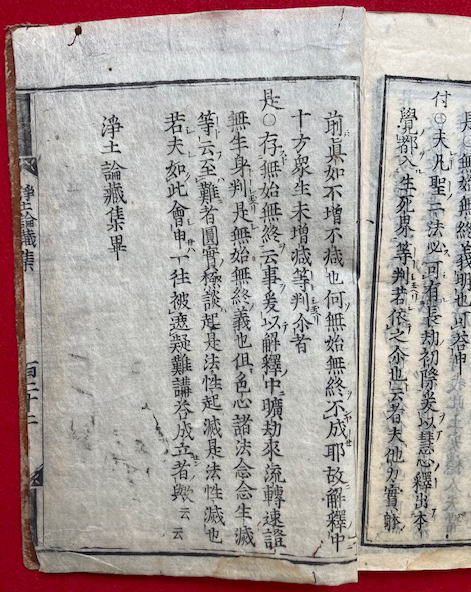 是○無始無終我明也可答申
付○夫凡聖二法必可有長劫初際爰以慧心釋出本
覺都入生死界等判若依之介也云者夫他力實躰
前眞如不増不減也何無始無終不成耶故解釋中
十方衆生未増減等判介者
是○存無始無終云事爰以解釋中曠劫來流轉速證
無生身判是無始無終義也但色心諸法念念生滅
等云至難者圓實極談起是法性起滅是法性滅也
若夫如此會申一往被遮疑難講答成立者歟云云
淨土論藏集畢
淨土論藏集
百二十二